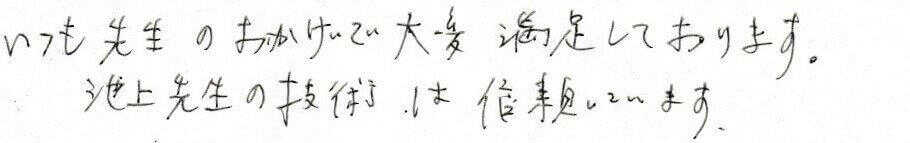 いつも先生のおかげで大変満足しております。
池上先生の技術は信頼しています。